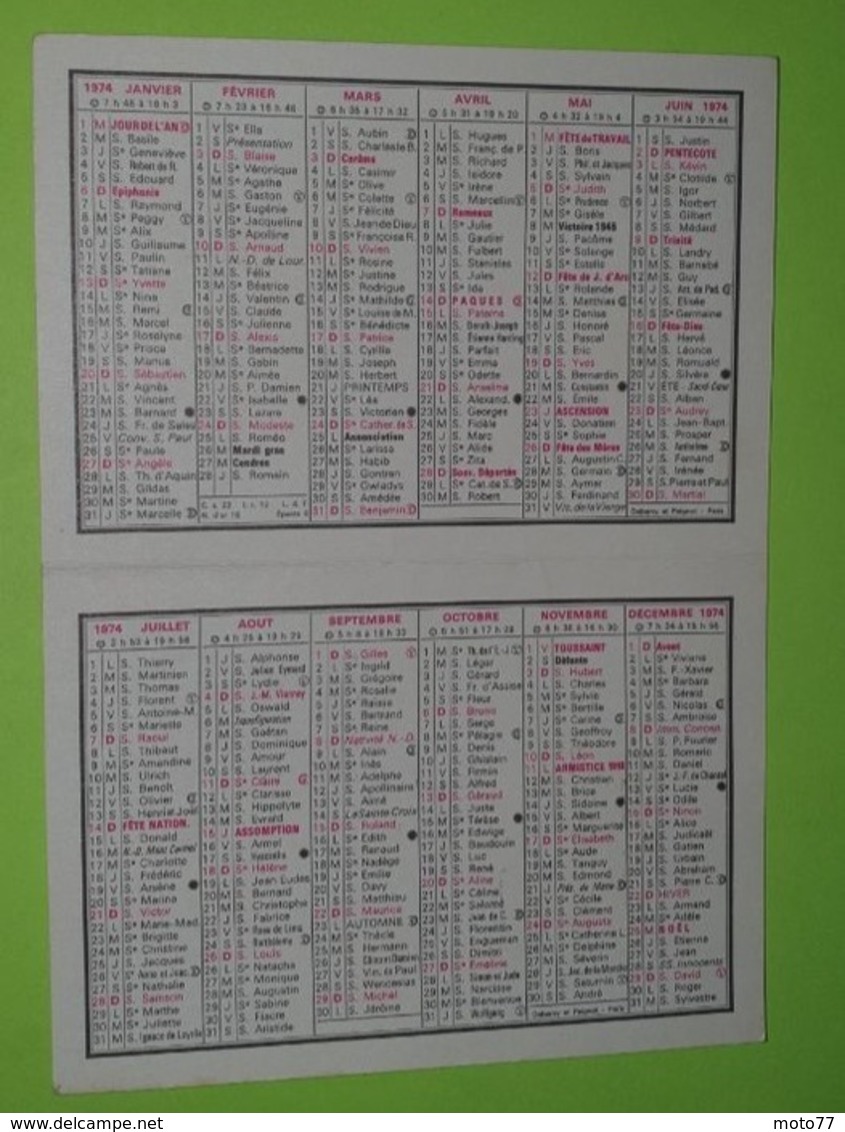 1974 JANVIER
1 M JOUR DE L'AN
2 M S. Basile
3 J Sᵉ Geneviève
4 V S. Robert de R.
5 S S. Edouard
6 D Epiphanie
7 L S. Raymond
8 M Sᵉ Peggy
9 M Sᵉ Alix
10 J S. Guillaume
11 V S. Paulin
12 S Sᵉ Tatiana
13 D Sᵉ Yvette
14 L Sᵉ Nina
15 M S. Remi
16 M S. Marcel
17 J Sᵉ Roselyne
18 V Sᵉ Prisca
19 S S. Marius
20 D S. Sébastien
21 L Sᵉ Agnès
22 M S. Vincent
23 M S. Barnard
24 J S. Fr. de Sales
25 V Conv. S. Paul
26 S Sᵉ Paule
27 D Sᵉ Angèle
28 L S. Th. d'Aquin
29 M S. Gildas
30 M Sᵉ Martine
31 J Sᵉ Marcelle
FÉVRIER
1 V Sᵉ Ella
2 S Présentation
3 D S. Blaise
4 L Sᵉ Véronique
5 M Sᵉ Agathe
6 M S. Gaston
7 J Sᵉ Eugénie
8 V Sᵉ Jacqueline
9 S Sᵉ Apolline
10 D S. Arnaud
11 L N.-D. de Lour.
12 M S. Félix
13 M Sᵉ Béatrice
14 J S. Valentin
15 V S. Claude
16 S Sᵉ Julienne
17 D S. Alexis
18 L Sᵉ Bernadette
19 M S. Gabin
20 M Sᵉ Aimée
21 J S. P. Damien
22 V Sᵉ Isabelle
23 S S. Lazare
24 D S. Modeste
25 L S. Roméo
26 M Mardi gras
27 M Cendres
28 J S. Romain
MARS
1 V S. Aubin
2 S S. Charles le B.
3 D Carême
4 L S. Casimir
5 M Sᵉ Olive
6 M Sᵉ Colette
7 J Sᵉ Félicité
8 V S. Jean de Dieu
9 S Sᵉ Françoise R.
10 D S. Vivien
11 L Sᵉ Rosine
12 M Sᵉ Justine
13 M S. Rodrigue
14 J Sᵉ Mathilde
15 V Sᵉ Louise de M.
16 S Sᵉ Bénédicte
17 D S. Patrice
18 L S. Cyrille
19 M S. Joseph
20 M S. Herbert
21 J PRINTEMPS
22 V Sᵉ Léa
23 S S. Victorien
24 D Sᵉ Cather. de S.
25 L Annonciation
26 M Sᵉ Larissa
27 M S. Habib
28 J S. Gontran
29 V Sᵉ Gwladys
30 S S. Amédée
31 D S. Benjamin
AVRIL
1 L S. Hugues
2 M S. Franç. de P.
3 M S. Richard
4 J S. Isidore
5 V Sᵉ Irène
6 S S. Marcellin
7 D Rameaux
8 L Sᵉ Julie
9 M S. Gautier
10 M S. Fulbert
11 J S. Stanislas
12 V S. Jules
13 S Sᵉ Ida
14 D PAQUES
15 L S. Paterne
16 M S. Benoît-Joseph
17 M S. Étienne Harding
18 J S. Parfait
19 V Sᵉ Emma
20 S Sᵉ Odette
21 D S. Anselme
22 L S. Alexand.
23 M S. Georges
24 M S. Fidèle
25 J S. Marc
26 V Sᵉ Alida
27 S Sᵉ Zita
28 D Souv. Déportés
29 L Sᵉ Cat. de S.
30 M S. Robert
MAI
1 M FÊTE du TRAVAIL
2 J S. Boris
3 V SS. Phil. et Jacques
4 S S. Sylvain
5 D Sᵉ Judith
6 L Sᵉ Prudence
7 M Sᵉ Gisèle
8 M Victoire 1945
9 J S. Pacôme
10 V Sᵉ Solange
11 S Sᵉ Estelle
12 D Fête de J. d'Arc
13 L Sᵉ Rolande
14 M S. Matthias
15 M Sᵉ Denise
16 J S. Honoré
17 V S. Pascal
18 S S. Eric
19 D S. Yves
20 L S. Bernardin
21 M S. Constantin
22 M S. Émile
23 J ASCENSION
24 V S. Donatien
25 S Sᵉ Sophie
26 D Fête des Mères
27 L S. Augustin C.
28 M S. Germain
29 M S. Aymar
30 J S. Ferdinand
31 V Vis. de la Vierge
JUIN 1974
1 S S. Justin
2 D PENTECOTE
3 L S. Kévin
4 M Sᵉ Clotilde
5 M S. Igor
6 J S. Norbert
7 V S. Gilbert
8 S S. Médard
9 D Trinité
10 L S. Landry
11 M S. Barnabé
12 M S. Guy
13 J S. Ant. de Pad.
14 V S. Elisée
15 S Sᵉ Germaine
16 D Fête-Dieu
17 L S. Hervé
18 M S. Léonce
19 M S. Romuald
20 J S. Silvère
21 V ÉTÉ - Sacré Cœur
22 S S. Alban
23 D Sᵉ Audrey
24 L S. Jean-Bapt.
25 M S. Prosper
26 M S. Anthelme
27 J S. Fernand
28 V S. Irénée
29 S S. Pierre et Paul
30 D S. Martial
Debarny et Peignot - Paris
1974 JUILLET
1 L S. Thierry
2 M S. Martinien
3 M S. Thomas
4 J S. Florent
5 V S. Antoine-M.
6 S Sᵉ Mariette
7 D S. Raoul
8 L S. Thibaut
9 M Sᵉ Amandine
10 M S. Ulrich
11 J S. Benoît
12 V S. Olivier
13 S S. Henri et Joël
14 D FÊTE NATION.
15 L S. Donald
16 M N.-D. Mont Carmel
17 M Sᵉ Charlotte
18 J S. Frédéric
19 V S. Arsène
20 S Sᵉ Marina
21 D S. Victor
22 L Sᵉ Marie-Mad.
23 M Sᵉ Brigitte
24 M Sᵉ Christine
25 J S. Jacques
26 V Sᵉ Anne et Joac.
27 S Sᵉ Nathalie
28 D S. Samson
29 L Sᵉ Marthe
30 M Sᵉ Juliette
31 M S. Ignace de Loyola
AOUT
1 J S. Alphonse
2 V S. Julien Eymard
3 S Sᵉ Lydie
4 D S. J.-M. Vianney
5 L S. Oswald
6 M Transfiguration
7 M S. Gaétan
8 J S. Dominique
9 V S. Amour
10 S S. Laurent
11 D Sᵉ Claire
12 L Sᵉ Clarisse
13 M S. Hippolyte
14 M S. Evrard
15 J ASSOMPTION
16 V S. Armel
17 S S. Hyacinthe
18 D Sᵉ Hélène
19 L S. Jean Eudes
20 M S. Bernard
21 M S. Christophe
22 J S. Fabrice
23 V Sᵉ Rose de Lima
24 S S. Barthélemy
25 D S. Louis
26 L Sᵉ Natacha
27 M Sᵉ Monique
28 M S. Augustin
29 J Sᵉ Sabine
30 V S. Fiacre
31 S S. Aristide
SEPTEMBRE
1 D S. Gilles
2 L Sᵉ Ingrid
3 M S. Grégoire
4 M Sᵉ Rosalie
5 J Sᵉ Raïssa
6 V S. Bertrand
7 S Sᵉ Reine
8 D Nativité N.-D.
9 L S. Alain
10 M Sᵉ Inès
11 M S. Adelphe
12 J S. Apollinaire
13 V S. Aimé
14 S La Sainte Croix
15 D S. Roland
16 L Sᵉ Edith
17 M S. Renaud
18 M Sᵉ Nadège
19 J Sᵉ Émilie
20 V S. Davy
21 S S. Matthieu
22 D S. Maurice
23 L AUTOMNE
24 M Sᵉ Thècle
25 M S. Hermann
26 J SS. Côme et Damien
27 V S. Vin. de Paul
28 S S. Wenceslas
29 D S. Michel
30 L S. Jérôme
OCTOBRE
1 M Sᵉ Th. de l'E.-J
2 M S. Léger
3 J S. Gérard
4 V S. Fr. d'Assise
5 S Sᵉ Fleur
6 D S. Bruno
7 L S. Serge
8 M Sᵉ Pélagie
9 M S. Denis
10 J S. Ghislain
11 V S. Firmin
12 S S. Alfred
13 D S. Géraud
14 L S. Juste
15 M Sᵉ Térèse
16 M Sᵉ Edwige
17 J S. Baudouin
18 V S. Luc
19 S S. René
20 D Sᵉ Aline
21 L Sᵉ Céline
22 M Sᵉ Salomé
23 M S. Jean de C.
24 J S. Florentin
25 V S. Enguerran
26 S S. Dimitri
27 D Sᵉ Emeline
28 L SS. Simon et Jude
29 M S. Narcisse
30 M Sᵉ Bienvenue
31 J S. Wolfgang
NOVEMBRE
1 V TOUSSAINT
2 S Défunts
3 D S. Hubert
4 L S. Charles
5 M Sᵉ Sylvie
6 M Sᵉ Bertille
7 J Sᵉ Carine
8 V S. Geoffroy
9 S S. Théodore
10 D S. Léon
11 L ARMISTICE 1918
12 M S. Christian
13 M S. Brice
14 J S. Sidoine
15 V S. Albert
16 S Sᵉ Marguerite
17 D Sᵉ Elisabeth
18 L Sᵉ Aude
19 M S. Tanguy
20 M S. Edmond
21 J Prés. de Marie
22 V Sᵉ Cécile
23 S S. Clément
24 D Sᵉ Augusta
25 L Sᵉ Catherine L.
26 M Sᵉ Delphine
27 M S. Séverin
28 J S. Jac. de la Marche
29 V S. Saturnin
30 S S. André
DÉCEMBRE 1974
1 D Avent
2 L Sᵉ Viviane
3 M S. F.-Xavier
4 M Sᵉ Barbara
5 J S. Gérald
6 V S. Nicolas
7 S S. Ambroise
8 D Imm. Concep.
9 L S. P. Fourier
10 M S. Romaric
11 M S. Daniel
12 J Sᵉ J.-F. de Chantal
13 V Sᵉ Lucie
14 S Sᵉ Odile
15 D Sᵉ Ninon
16 L Sᵉ Alice
17 M S. Judicaël
18 M S. Gatien
19 J S. Urbain
20 V S. Abraham
21 S S. Pierre C.
22 D HIVER
23 L S. Armand
24 M Sᵉ Adèle
25 M NOËL
26 J S. Etienne
27 V S. Jean
28 S SS. Innocents
29 D S. David
30 L S. Roger
31 M S. Sylvestre
Debarny et Peignot - Paris
delcampe.net
moto77